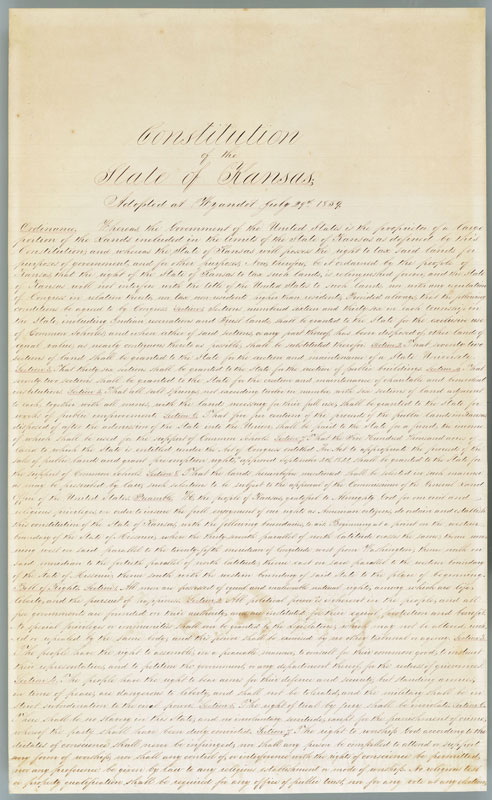 Constitution
of the
State of Kansas,
Adopted at Wyandot July 29th 1859
Ordenance, Whereas the Government of the United States is the proprietor of a large
portion of the Lands included in the limits of the State of Kansas as defined by this
Constitution; and whereas the State of Kansas will possess the right to tax said lands for
purposes of government and for other purposes. Now therefore be it ordained by the people of
Kansas that the right of the State of Kansas to tax such lands, is relinquished forever, and the State
of Kansas will not interfere with the title of the United States to such lands nor with any regulation
of Congress in relation thereto nor tax non residents higher than residents, Provided always, that the following
conditions be agreed to by Congress Section 1. Sections numbered sixteen and thirty-six in each township in
the State, including Indian reservations and trust lands, shall be granted to the State for the exclusive use
of Common Schools; and when either of said sections, or any part thereof has been disposed of, other lands of
equal value, as nearly contiguous thereto as possible shall be substituted therefor. Section 2. That seventy two
sections of land shall be granted to the State for the erection and maintenance of a State University.
Section 3. That thirty six section shall be granted to the state for the erection of public buildings Section 4. That
seventy two section shall be granted to the State for the erection and maintenance of charitable and benevolent
institutions. Section 5. That all salt springs, not exceeding twelve in number, with six sections of land adjacent
to each together with all mines, with the lands necessary for their full use, shall be granted to the State for
works of public improvement. Section 6. That five per centum of the proceeds of the public lands in Kansas,
disposed of after the admission of the State into the Union shall be paid to the State for a fund, the income
of which shall be used for the support of Common Schools. Section 7. That the five Hundred Thousand acres of
land to which the State is entitled under the Act of Congress entitled "An Act to appropriate the proceeds of the
sales of public lands and grant pre-emption rights" approved September 4th 1841, shall be granted to the State for
the support of Common Schools. Section 8. That the lands hereinbefore mentioned shall be selected in such manner
as may be prescribed by law; such selections to be subject to the approval of the Commissioner of the General Land
Office of the United States. Preamble. We the people of Kansas, grateful to Almighty God for our civil and
religious privileges, in order to insure the full enjoyment of our rights as American citizens, do ordain and establish
this constitution of the State of Kansas, with the following boundaries, to wit: Beginning at a point on the western
boundary of the State of Missouri, where the thirty-seventh parallel of north latitude crosses the same; thence run-
ning west on said parallel to the twenty fifth meridian of longitude west from Washington; thence north on
said meridian to the fortieth parallel of north latitude; thence east on said parallel to the western boundary
of the State of Missouri; thence south with the western boundary of said State to the place of beginning.
Bill of Rights. Section 1. All men are possessed of equal and inalienable natural rights, among which are life,
liberty, and the pursuit of happiness. Section 2. All political power is inherent in the people; and all
free governments are founded on their authority, and are instituted for their equal protection and benefit.
No special privileges or immunities shall ever be granted by the legislature, which may not be altered, revok-
ed or repealed by the same body; and this power shall be exercised by no other tribunal or agency. Section 3.
The people have the right to assemble, in a peaceable manner, to consult for their common good, to instruct
their representatives, and to petition the government, or any department thereof, for the redress of grievances.
Section 4. The people have the right to bear arms for their defense and security; but standing armies,
in time of peace, are dangerous to liberty, and shall not be tolerated, and the military shall be in
strict subordination to the civil power. Section 5. The right of trial by jury shall be inviolate. Section 6.
There shall be no slavery in this State; and no involuntary servitude, except for the punishment of crime,
whereof the party shall have been duly convicted. Section 7. The right to worship God according to the
dictates of conscience shall never be infringed; nor shall any person be compelled to attend or support
any form of worship; nor shall any control of, or interference with the rights of conscience be permitted,
nor any preference be given by law to any religious establishment or mode of worship. No religious test
or property qualification shall be required for any office of public trust, nor for any vote at any election,